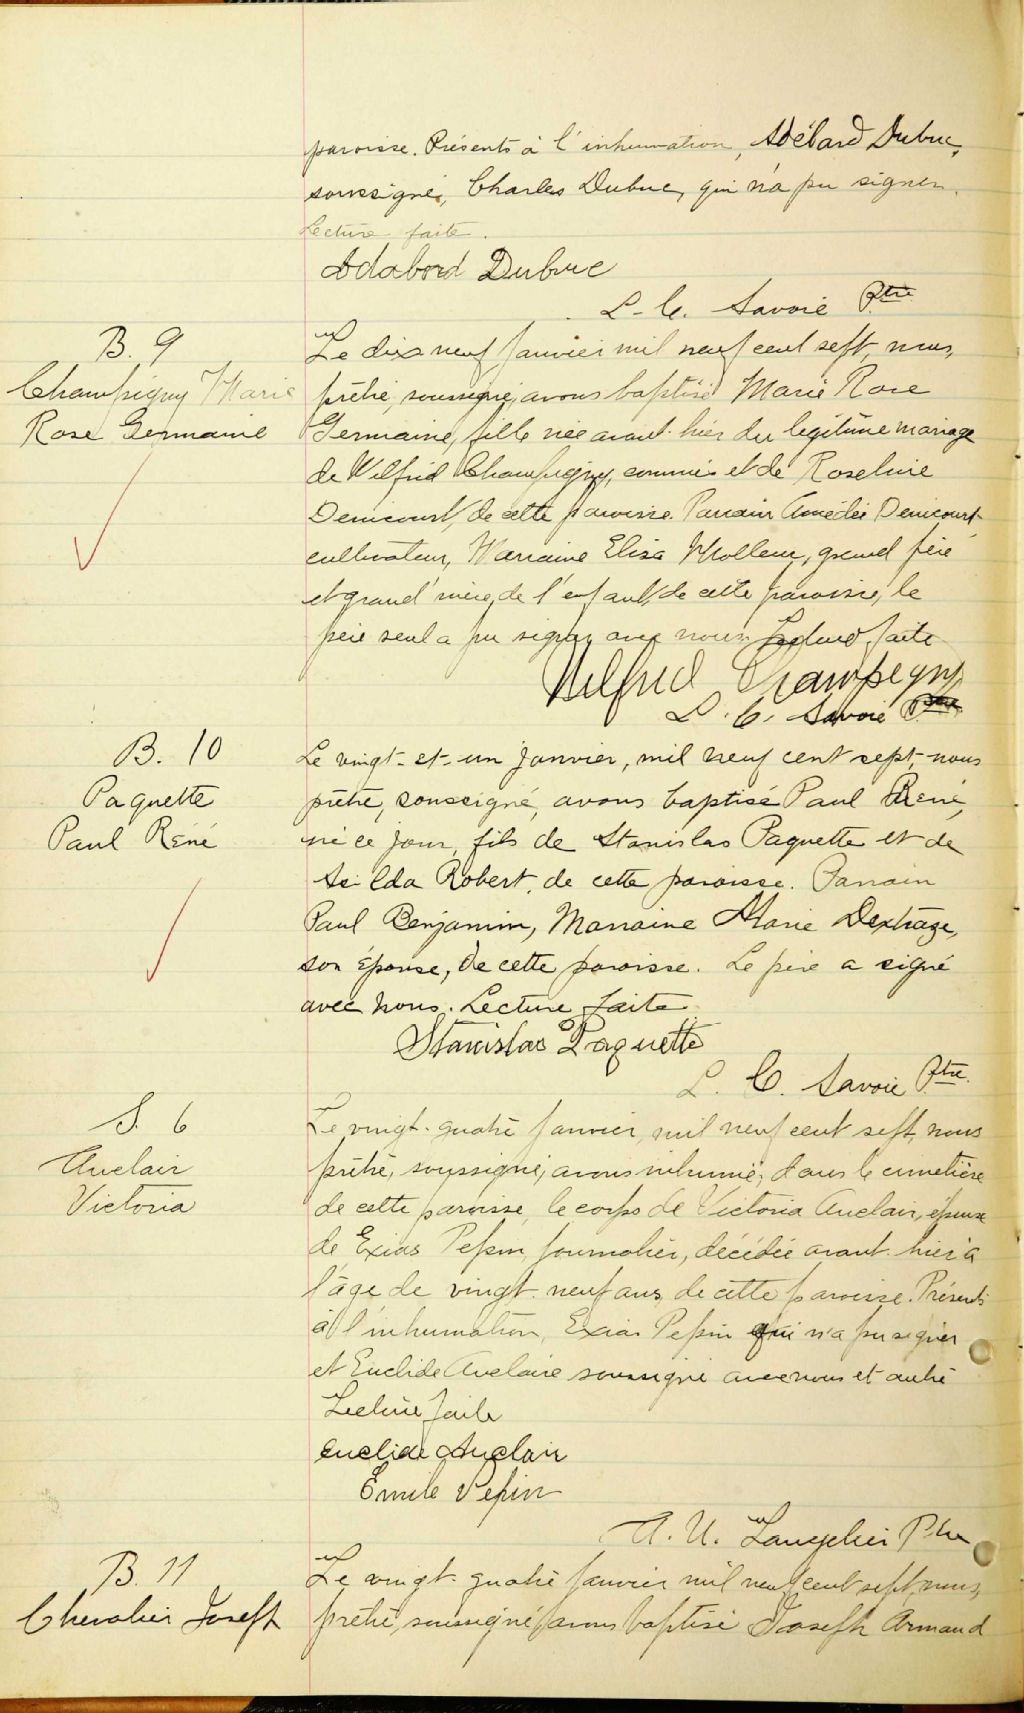 paroisse. Présents à l'inhumation, Adélard Dubuc,
soussigné, Charles Dubuc, qui n'a pu signer.
Lecture faite.
Adabord Dubuc
L. C. Savoie Ptre
B. 9
Champigny Marie
Rose Germaine
Le dix neuf Janvier mil neuf cent sept, nous,
prêtre, soussigné, avons baptisé Marie Rose
Germaine, fille née avant-hier du légitime mariage
de Wilfrid Champigny, commis et de Roselvie
Denicourt, de cette paroisse. Parrain Amédée Denicourt
cultivateur, Marraine Eliza Molleur, grand père
et grand'mère, de l'enfant, de cette paroisse, le
père seul a pu signer avec nous. Lecture faite
Wilfrid Champegny
L. C. Savoie Ptre
B. 10
Paquette
Paul Réné
Le vingt-et-un janvier, mil neuf cent sept, nous
prêtre, soussigné, avons baptisé Paul René,
né ce jour, fils de Stanislas Paquette et de
Robert, de cette paroisse. Parrain
Paul Benjamin, Marraine Marie Dextraze,
son épouse, de cette paroisse. Le père a signé
avec nous. Lecture faite
Stanislas Paquette
L. C. Savoie Ptre.
S. 6
Auclair
Victoria
Le vingt-quatre Janvier, mil neuf cent sept, nous
prêtre, soussigné, avons inhumé, dans le cimetière
de cette paroisse, le corps de Victoria Auclair, épouse
de Exias Pepin, journalier, décédée avant-hier à
l'âge de vingt-neuf ans, de cette paroisse. Présents
à l'inhumation, Exias Pepin qui n'a pu signer
et Euclide Auclaire soussigné avec nous et autre
Lecture faite
Euclide Auclair
Emile Pepin
A. U. Langelier Ptre
B. 11
Chevalier Joseph
Le vingt-quatre Janvier mil neuf cent sept, nous,
prêtre, soussigné, avons baptisé Joseph Armand